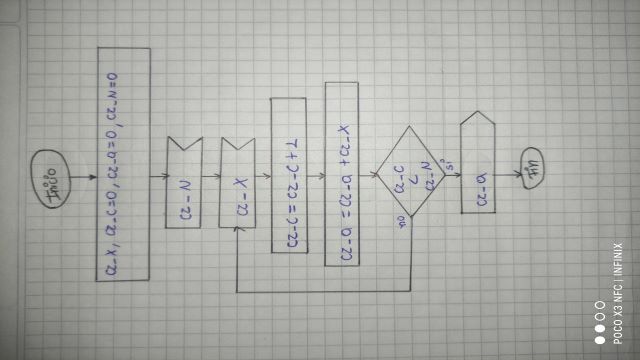 Inicio
CZ-X, CZ-C=0, CZ-a=0, CZ-N=0
CZ-N
CZ-X
CZ-C = CZ-C + 1
CZ-a = CZ-a + CZ-X
CZ-C
no
>
CZ-N
si
CZ-a
Fin
POCO X3 NFC | INFINIX